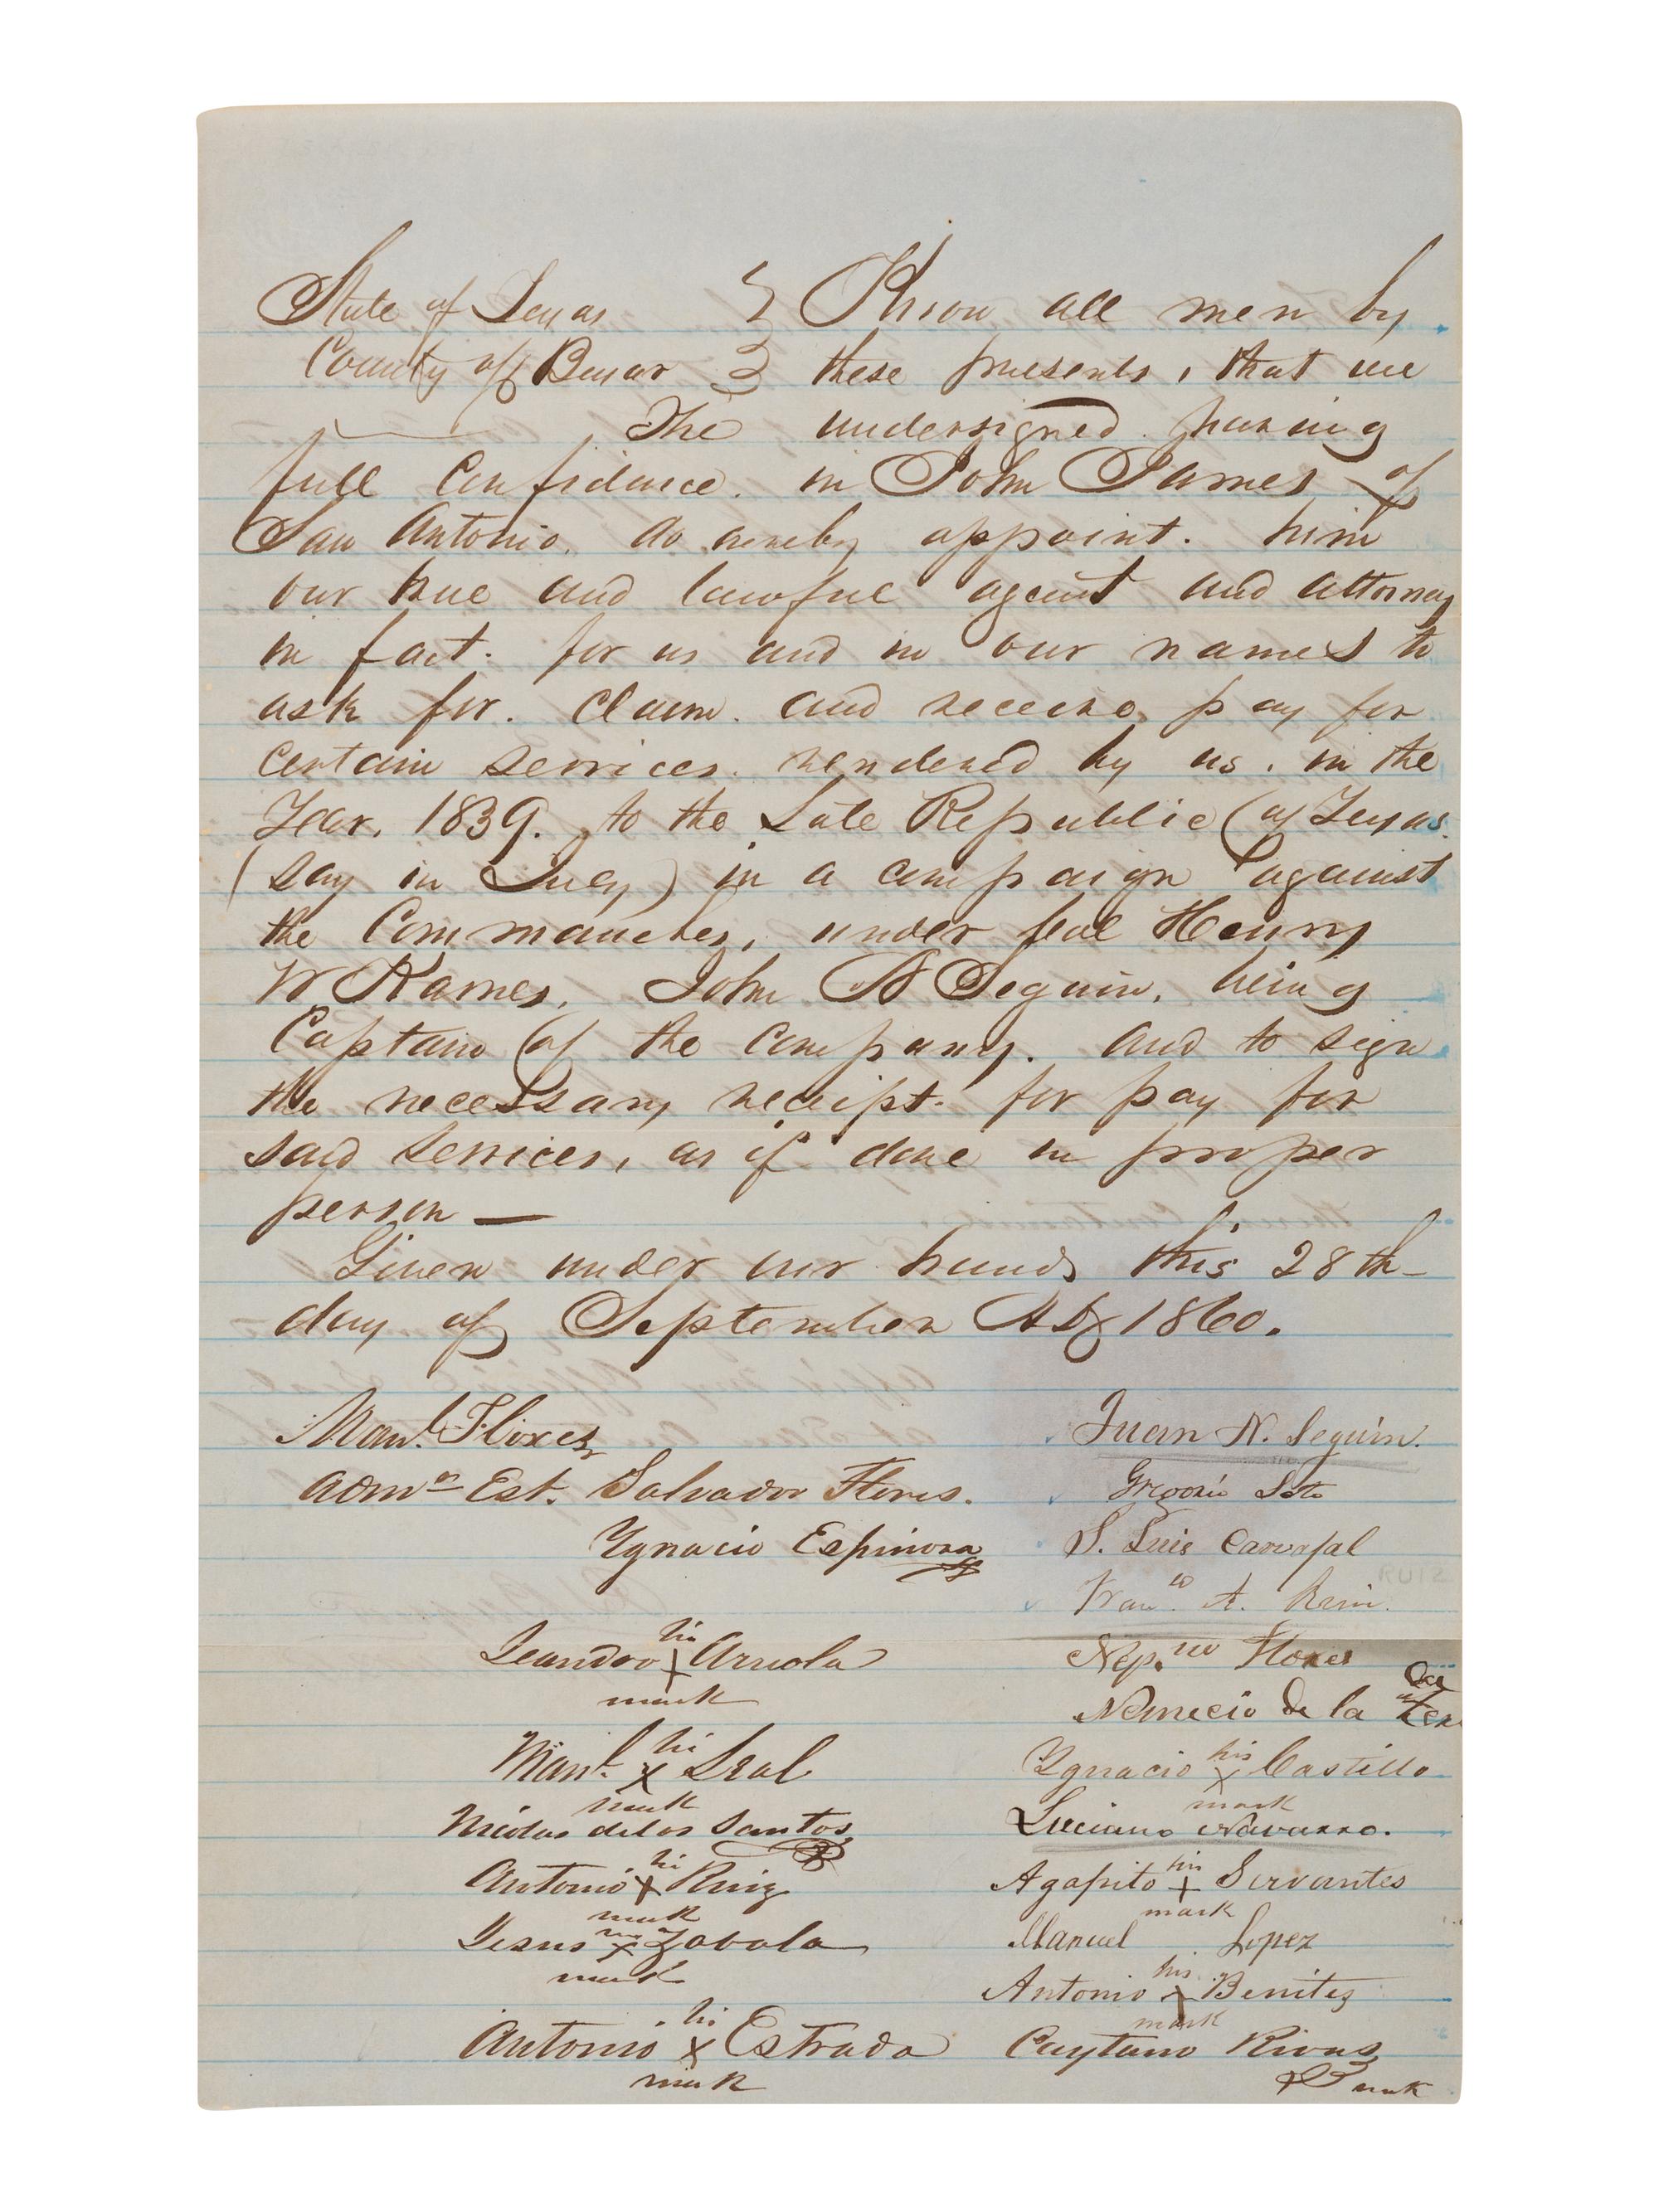 State of Texas } Know all men by
County of Bexar } these presents, that we
The undersigned having
full confidence. in John James of
San Antonio. do hereby appoint. him
our true and lawful agent and attorney
in fact. for us and in our names to
ask for. claim. and receive pay for
certain services. rendered by us. in the
Year. 1839. to the Late Republic of Texas.
(say in July) in a campaign against
the Commanches, under Henry
W Karnes. John N Seguin, being
Captain of the company. and to sign
the necessary receipt. for pay for
said services, as if done in proper
person —
Given under our hands this 28th
day of September AD 1860.
Manl. Flores
Admr Est. Salvador Flores.
Ygnacio Espinosa
Leandro his x Arreola
mark
Manl. his x Leal
mark
Nicolas delos Santos
Antonio his x Ruiz
mark
Jesus x Zabala
mark
Antonio his x Estrada
mark
Juan N. Seguin.
Gregorio Soto
S. Luis Carvajal
Franco. A. Ruiz.
RUIZ
Nep.no Flores
Nemecio de la
Ygnacio his x Castillo
mark
Luciano Navarro.
Agapito his x Servantes
mark
Manuel Lopez
Antonio his x Benites
mark
Caytano Rivas
mark